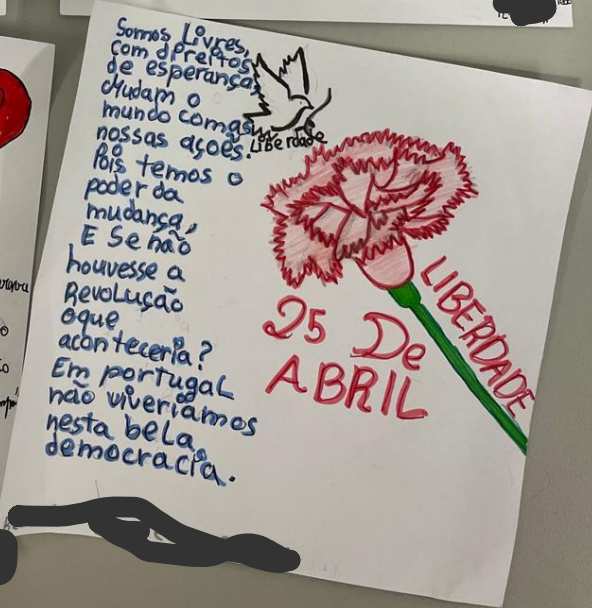 Somos Livres,
com direitos
de esperança
Mudam o
mundo com as
nossas ações.
Pois temos o
poder da
mudança,
E Se não
houvesse a
Revolução
oque
aconteceria?
Em portugal
não viveriamos
nesta bela
democracia.
Liberdade
25 De
ABRIL
LIBERDADE